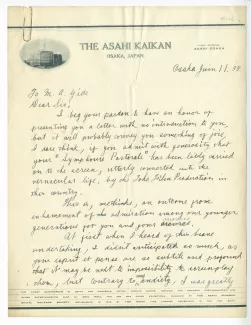 THE ASAHI KAIKAN
OSAKA, JAPAN
Osaka June 11, 38
To M. A. Gide
Dear Sir,
I beg your pardon to have an honor of
presenting you a letter with no introduction to you,
but it will probably convey you something of joy,
I dare think, if you admit with generosity that
your "Symphonie Pastorale" has been lately carried
on to the screen, utterly converted into the
vernacular life, by the Toho Film Production in
this country.
This is, methinks, an outcome from
enhancement of the admiration among our younger
generations for you and your oeuvres.
At first when I heard of this brave
undertaking, I didn't anticipated so much, as
your esprit et pensée are so subtle and profound
that it may be next to impossibility to
them, but contrary to anxiety, I was greatly